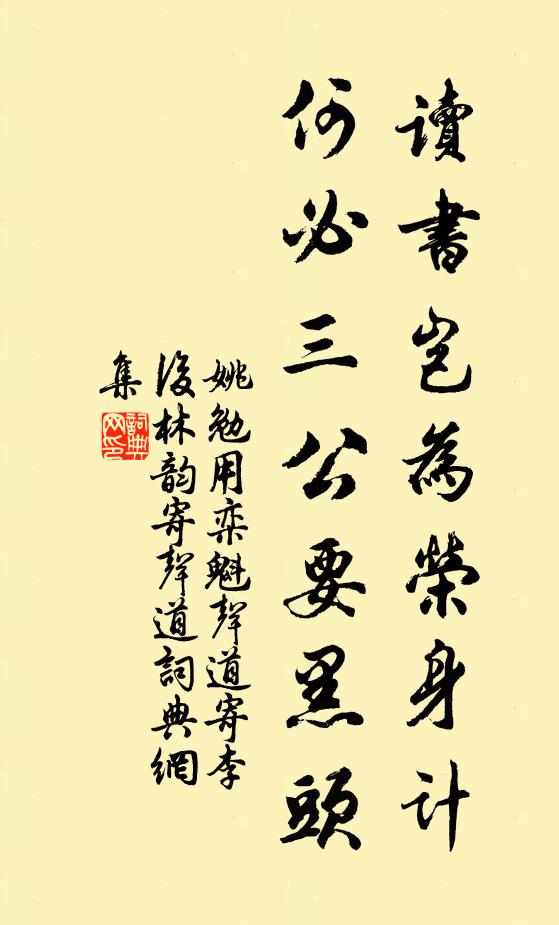 讀書豈為榮身計
何必三公要黑頭
姚勉用奕魁聲道寄李
後林韵寄聲道詞典網
集
詞典網印